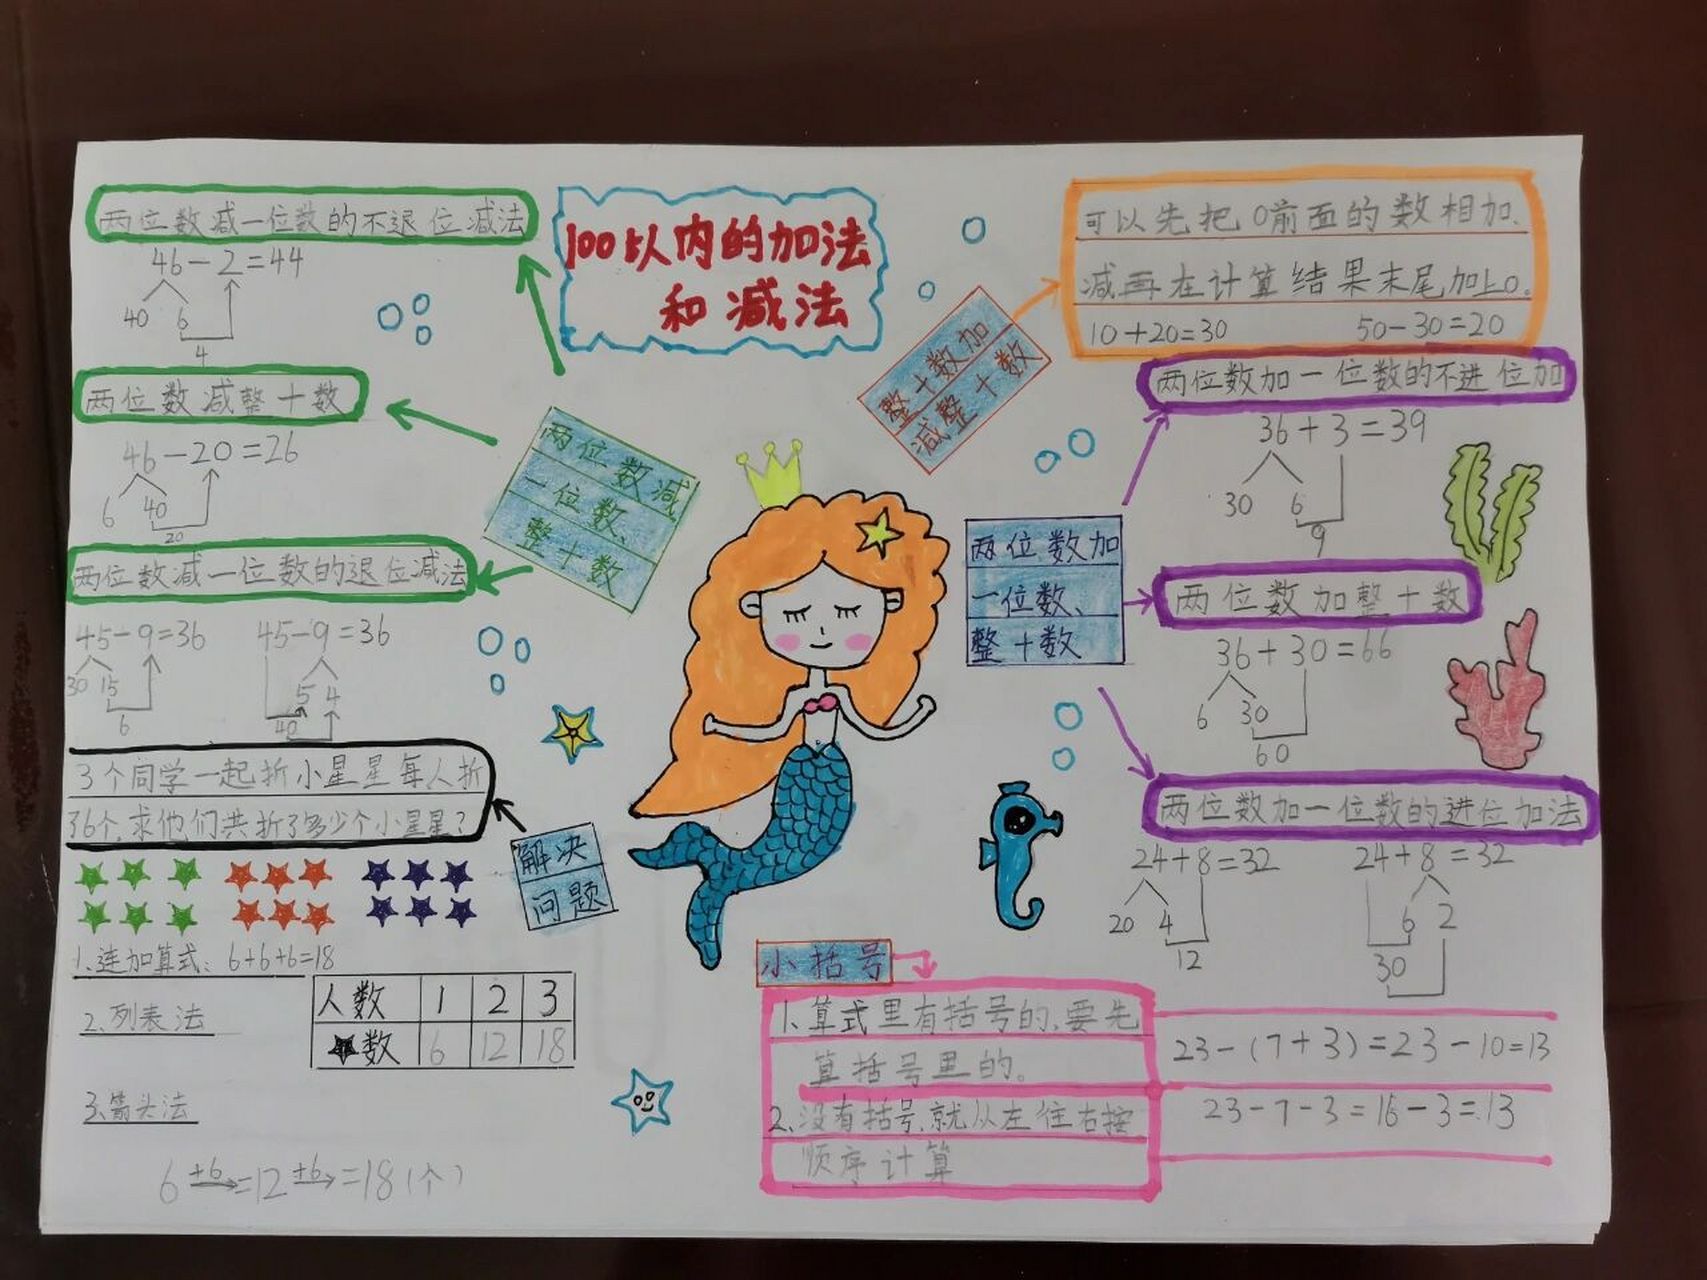 100以内的加法
和减法
两位数减一位数的不退位减法
46-2=44
40 6
4
两位数减整十数
46-20=26
6 40
20
两位数减一位数的退位减法
45-9=36
30 15
6
45-9=36
5 4
40
两位数减
一位数、
整十数
3个同学一起折小星星每人折
36个,求他们共折了多少个小星星?
解决
问题
1.连加算式: 6+6+6=18
2.列表法
人数 1 2 3
数 6 12 18
3.箭头法
6 +6 =12 +6 =18(个)
整十数加
减整十数
可以先把0前面的数相加、
减再在计算结果末尾加上0。
10+20=30 50-30=20
两位数加
一位数、
整十数
两位数加一位数的不进位加
36+3=39
30 6
9
两位数加整十数
36+30=66
6 30
60
两位数加一位数的进位加法
24+8=32
20 4
12
24+8=32
6 2
30
小括号
1.算式里有括号的,要先
算括号里的。
2.没有括号,就从左住右按
顺序计算
23-(7+3)=23-10=13
23-7-3=16-3=13